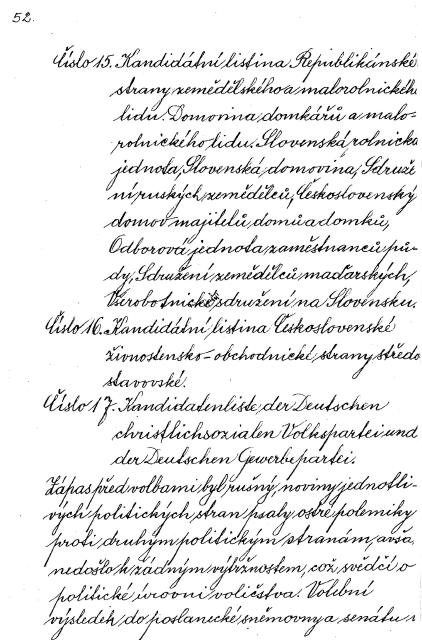 52.
Číslo 15. Kandidátní listina Republikánské
strany zemědělského a malorolnického
lidu. Domovina, domkářů a malo-
rolnického lidu. Slovenská rolnická
jednota, Slovenská domovina, Sdruže
ní ruských zemědělců, Československý
domov majitelů domů a domků,
Odborová jednota zaměstnanců pů-
dy, Sdružení zemědělců maďarských,
sdružení na Slovensku.
Číslo 16. Kandidátní listina Československé
živnostensko-obchodnické strany středo
stavovské.
Číslo 17. Kandidatenliste der Deutschen
christlichsozialen Volkspartei und
der Deutschen Gewerbepartei.
Zápas před volbami byl rušný, noviny jednotli-
vých politických stran psaly ostré polemiky
proti druhým politickým stranám, avša
nedošlo k žádným výtržnostem, což svědčí o
politické úrovni voličstva. Volební
výsledek do poslanecké sněmovny a senátu